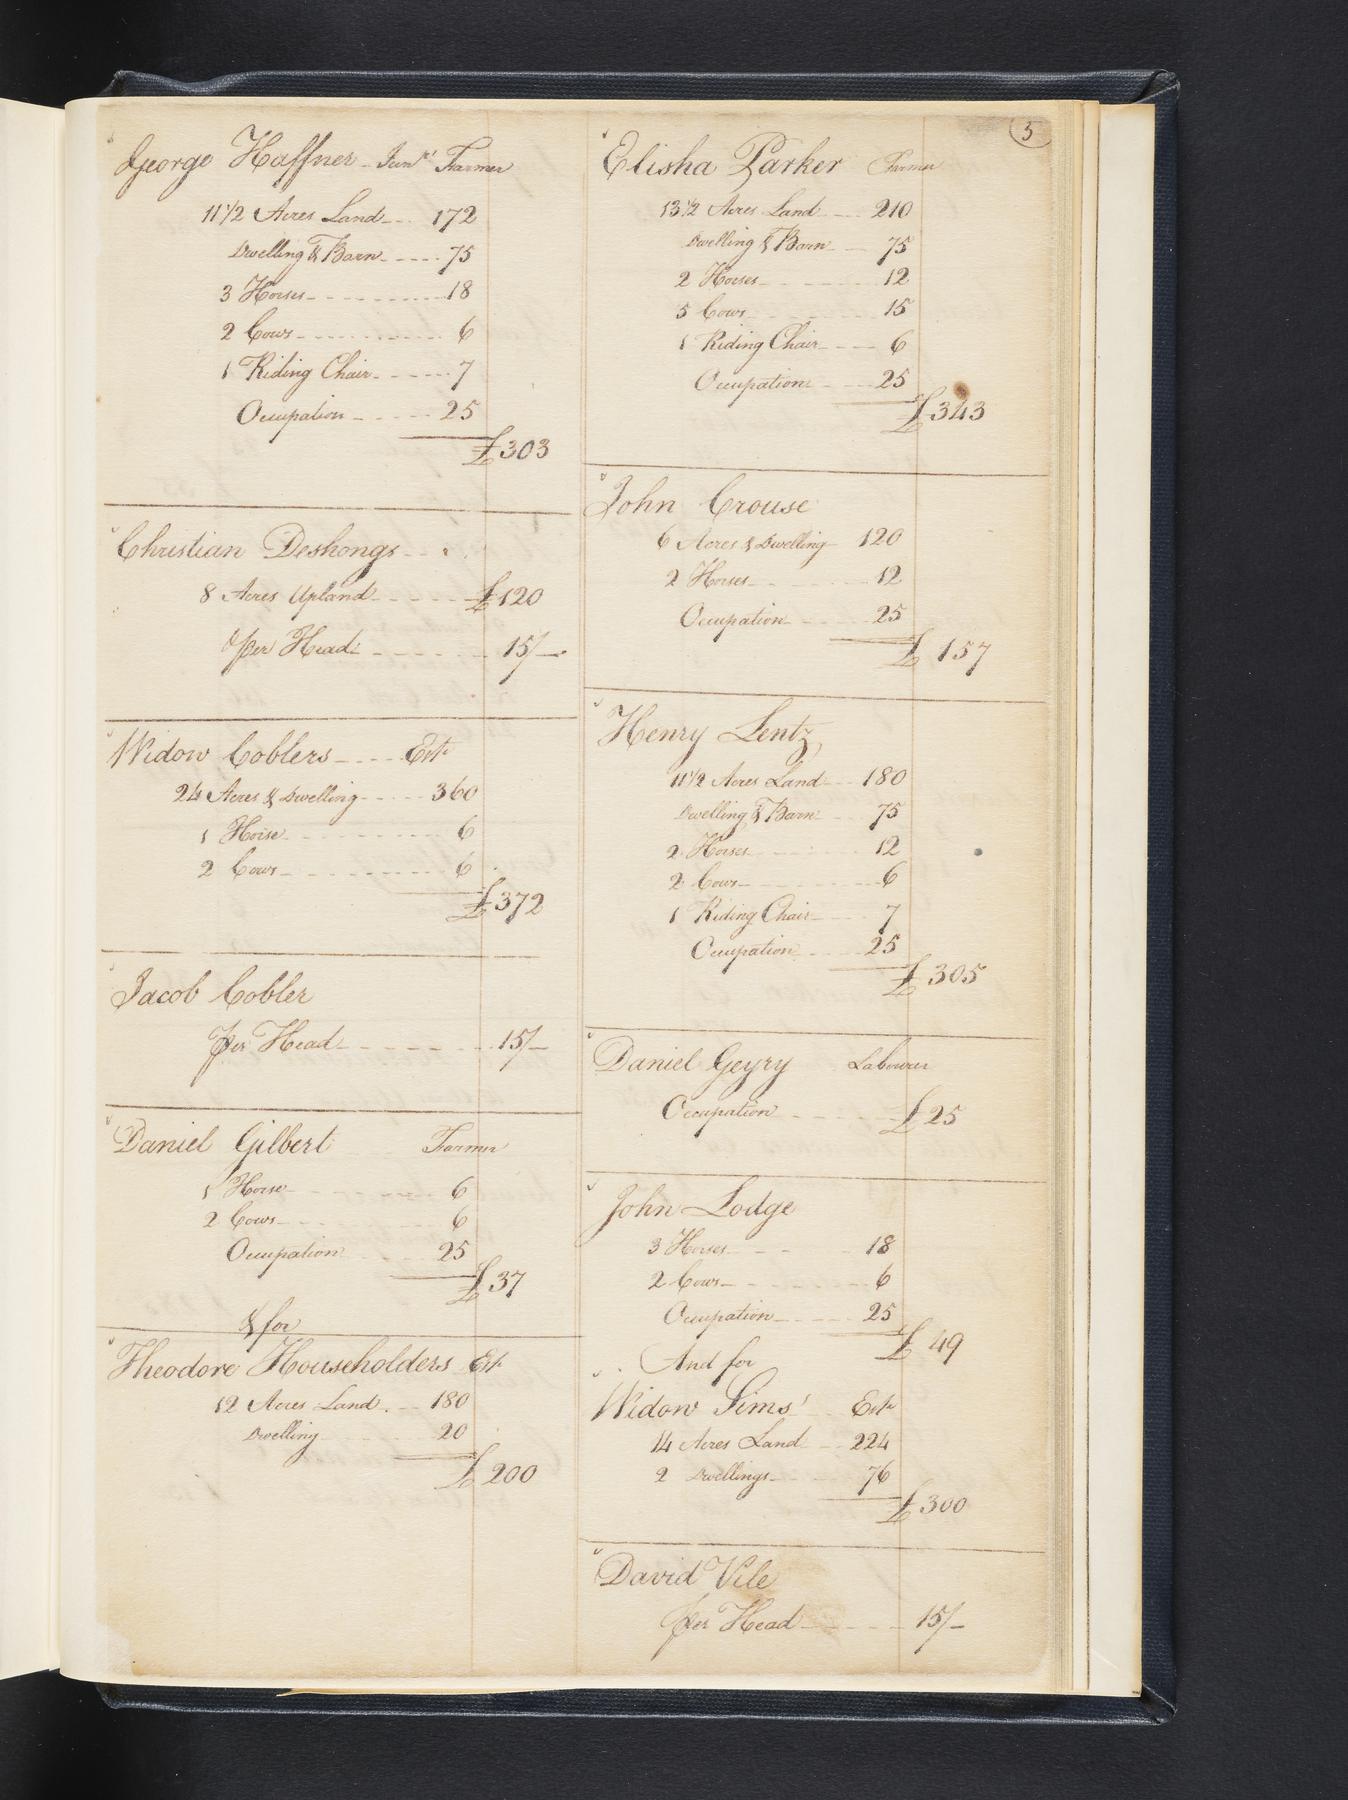 5
George Haffner Junr. Farmer
11 1/2 Acres Land 172
Dwelling & Barn 75
3 Horses 18
2 Cows 6
1 Riding Chair 7
Occupation 25
£303
Christian Deshongs
8 Acres Upland £120
per Head 15/-
Widow Coblers Este
24 Acres & Dwelling 360
1 Horse 6
2 Cows 6
£372
Jacob Cobler
per Head 15/-
Daniel Gilbert Farmer
1 Horse 6
2 Cows 6
Occupation 25
£37
& for
Theodore Householders Este
12 Acres Land 180
Dwelling 20
£200
Elisha Parker Farmer
13 1/2 Acres Land 210
Dwelling & Barn 75
2 Horses 12
5 Cows 15
1 Riding Chair 6
Occupation 25
£343
John Crouse
6 Acres & Dwelling 120
2 Horses 12
Occupation 25
£157
Henry Lentz
11 1/2 Acres Land 180
Dwelling & Barn 75
2 Horses 12
2 Cows 6
1 Riding Chair 7
Occupation 25
£305
Daniel Geyry Labourer
Occupation £25
John Lodge
3 Horses 18
2 Cows 6
Occupation 25
£49
And for
Widow Sims' Este
14 Acres Land 224
2 Dwellings 76
£300
David Vile
per Head 15/-